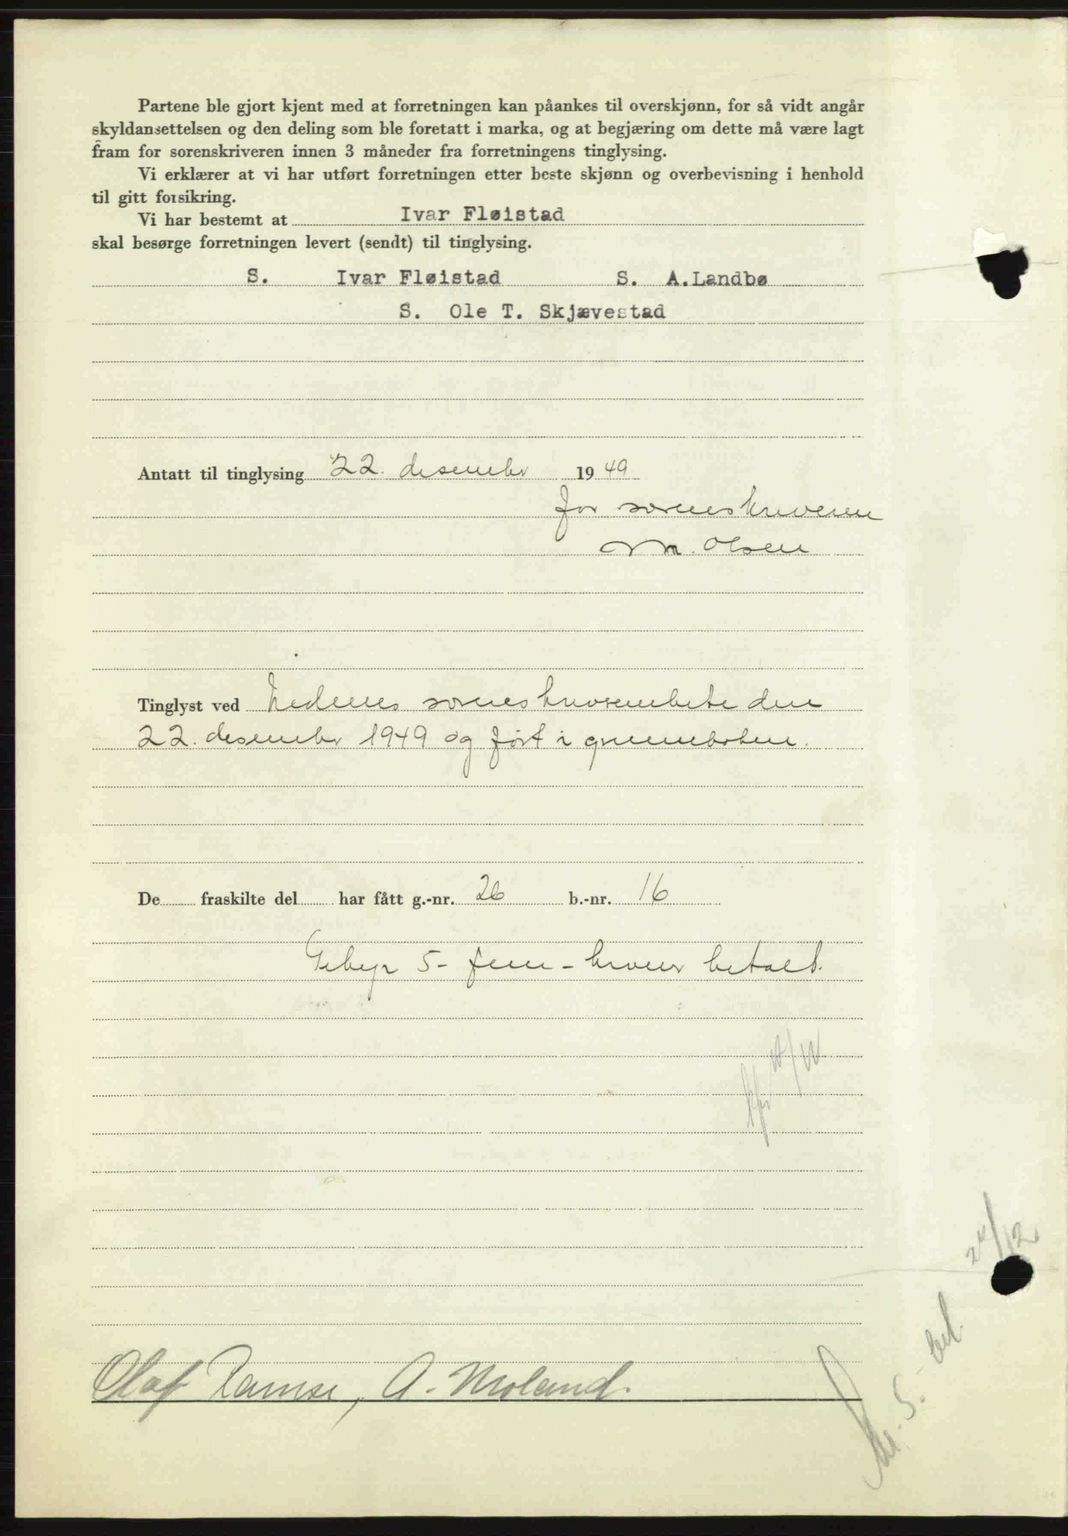 Partene ble gjort kjent med at forretningen kan påankes til overskjønn, for så vidt angår
skyldansettelsen og den deling som ble foretatt i marka, og at begjæring om dette må være lagt
fram for sorenskriveren innen 3 måneder fra forretningens tinglysing.
Vi erklærer at vi har utført forretningen etter beste skjønn og overbevisning i henhold
til gitt forsikring.
Vi har bestemt at Ivar Fløistad
skal besørge forretningen levert (sendt) til tinglysing.
S. Ivar Fløistad S. A.Landbø
S. Ole T. Skjævestad
Antatt til tinglysing 22. desember 1949
for sorenskriveren
M. Olsen
Tinglyst ved Nedenes sorenskriverembete den
22. desember 1949 og ført i grunnboken.
De fraskilte del har fått g.-nr. 26 b.-nr. 16
Gebyr 5- fem - kroner betalt.
Olaf Ramse, A. Moland.
kr. 5.- bet 24/12